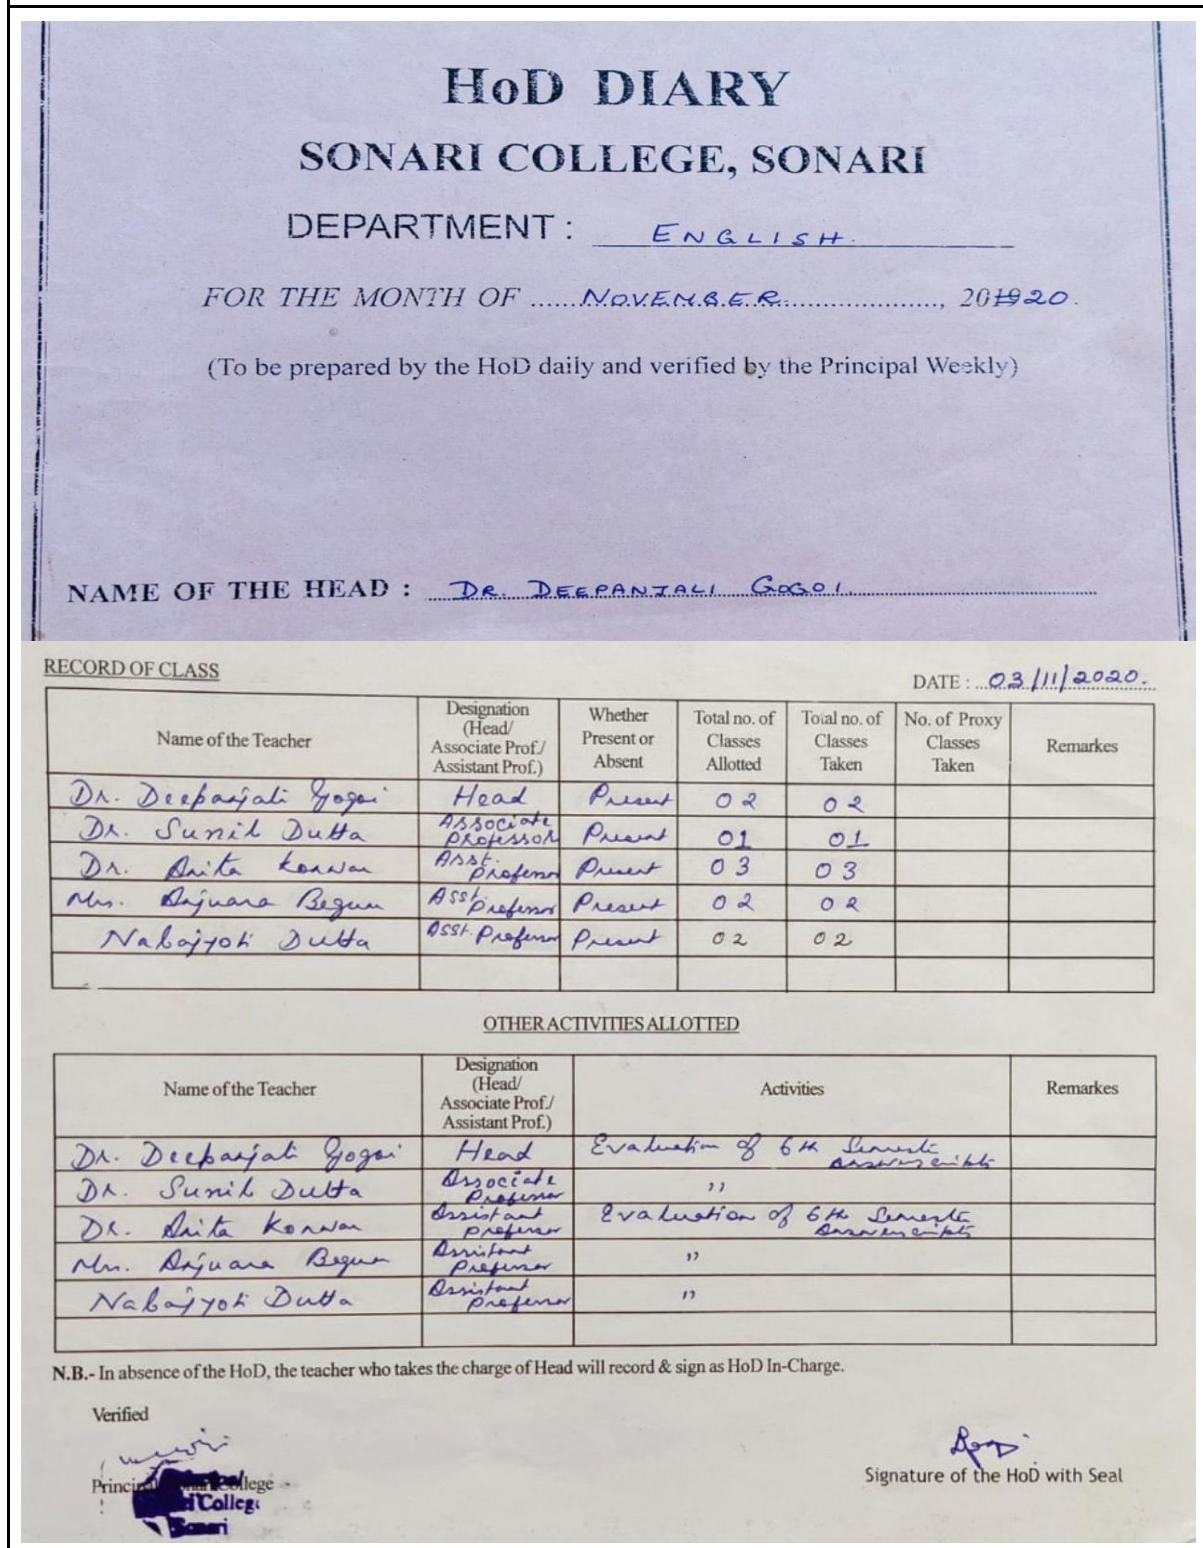 HoD DIARY
SONARI COLLEGE, SONARI
DEPARTMENT : ENGLISH.
FOR THE MONTH OF ......NOVEMBER...................., 201920.
(To be prepared by the HoD daily and verified by the Principal Weekly)
NAME OF THE HEAD : DR. DEEPANJALI GOGOI
RECORD OF CLASS
DATE : 03/11/2020.
Name of the Teacher Designation (Head/ Associate Prof./ Assistant Prof.) Whether Present or Absent Total no. of Classes Allotted Total no. of Classes Taken No. of Proxy Classes Taken Remarkes
Dr. Deepanjali Gogoi Head Present 02 02
Dr. Sunil Dutta Associate Professor Present 01 01
Dr. Anita Konwar Asst. Professor Present 03 03
Mrs. Anjuara Begum Asst. Professor Present 02 02
Nabajyoti Dutta Asst. Professor Present 02 02
OTHER ACTIVITIES ALLOTTED
Name of the Teacher Designation (Head/ Associate Prof./ Assistant Prof.) Activities Remarkes
Dr. Deepanjali Gogoi Head Evaluation of 6th Semester Answerscripts
Dr. Sunil Dutta Associate Professor "
Dr. Anita Konwar Assistant Professor Evaluation of 6th Semester Answerscripts
Mrs. Anjuara Begum Assistant Professor "
Nabajyoti Dutta Assistant Professor "
N.B.- In absence of the HoD, the teacher who takes the charge of Head will record & sign as HoD In-Charge.
Verified
Signature of the HoD with Seal
College
Sonari